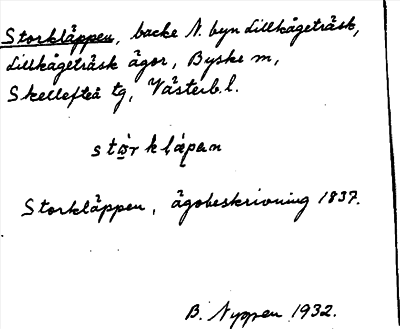 Storkläppen, backe N. byn Lillkågeträsk,
Lillkågeträsk ägor, Byske sn,
Skellefteå tg, Västerb. l.
Storkläppen, ägobeskrivning 1837.
B. Nygren 1932.